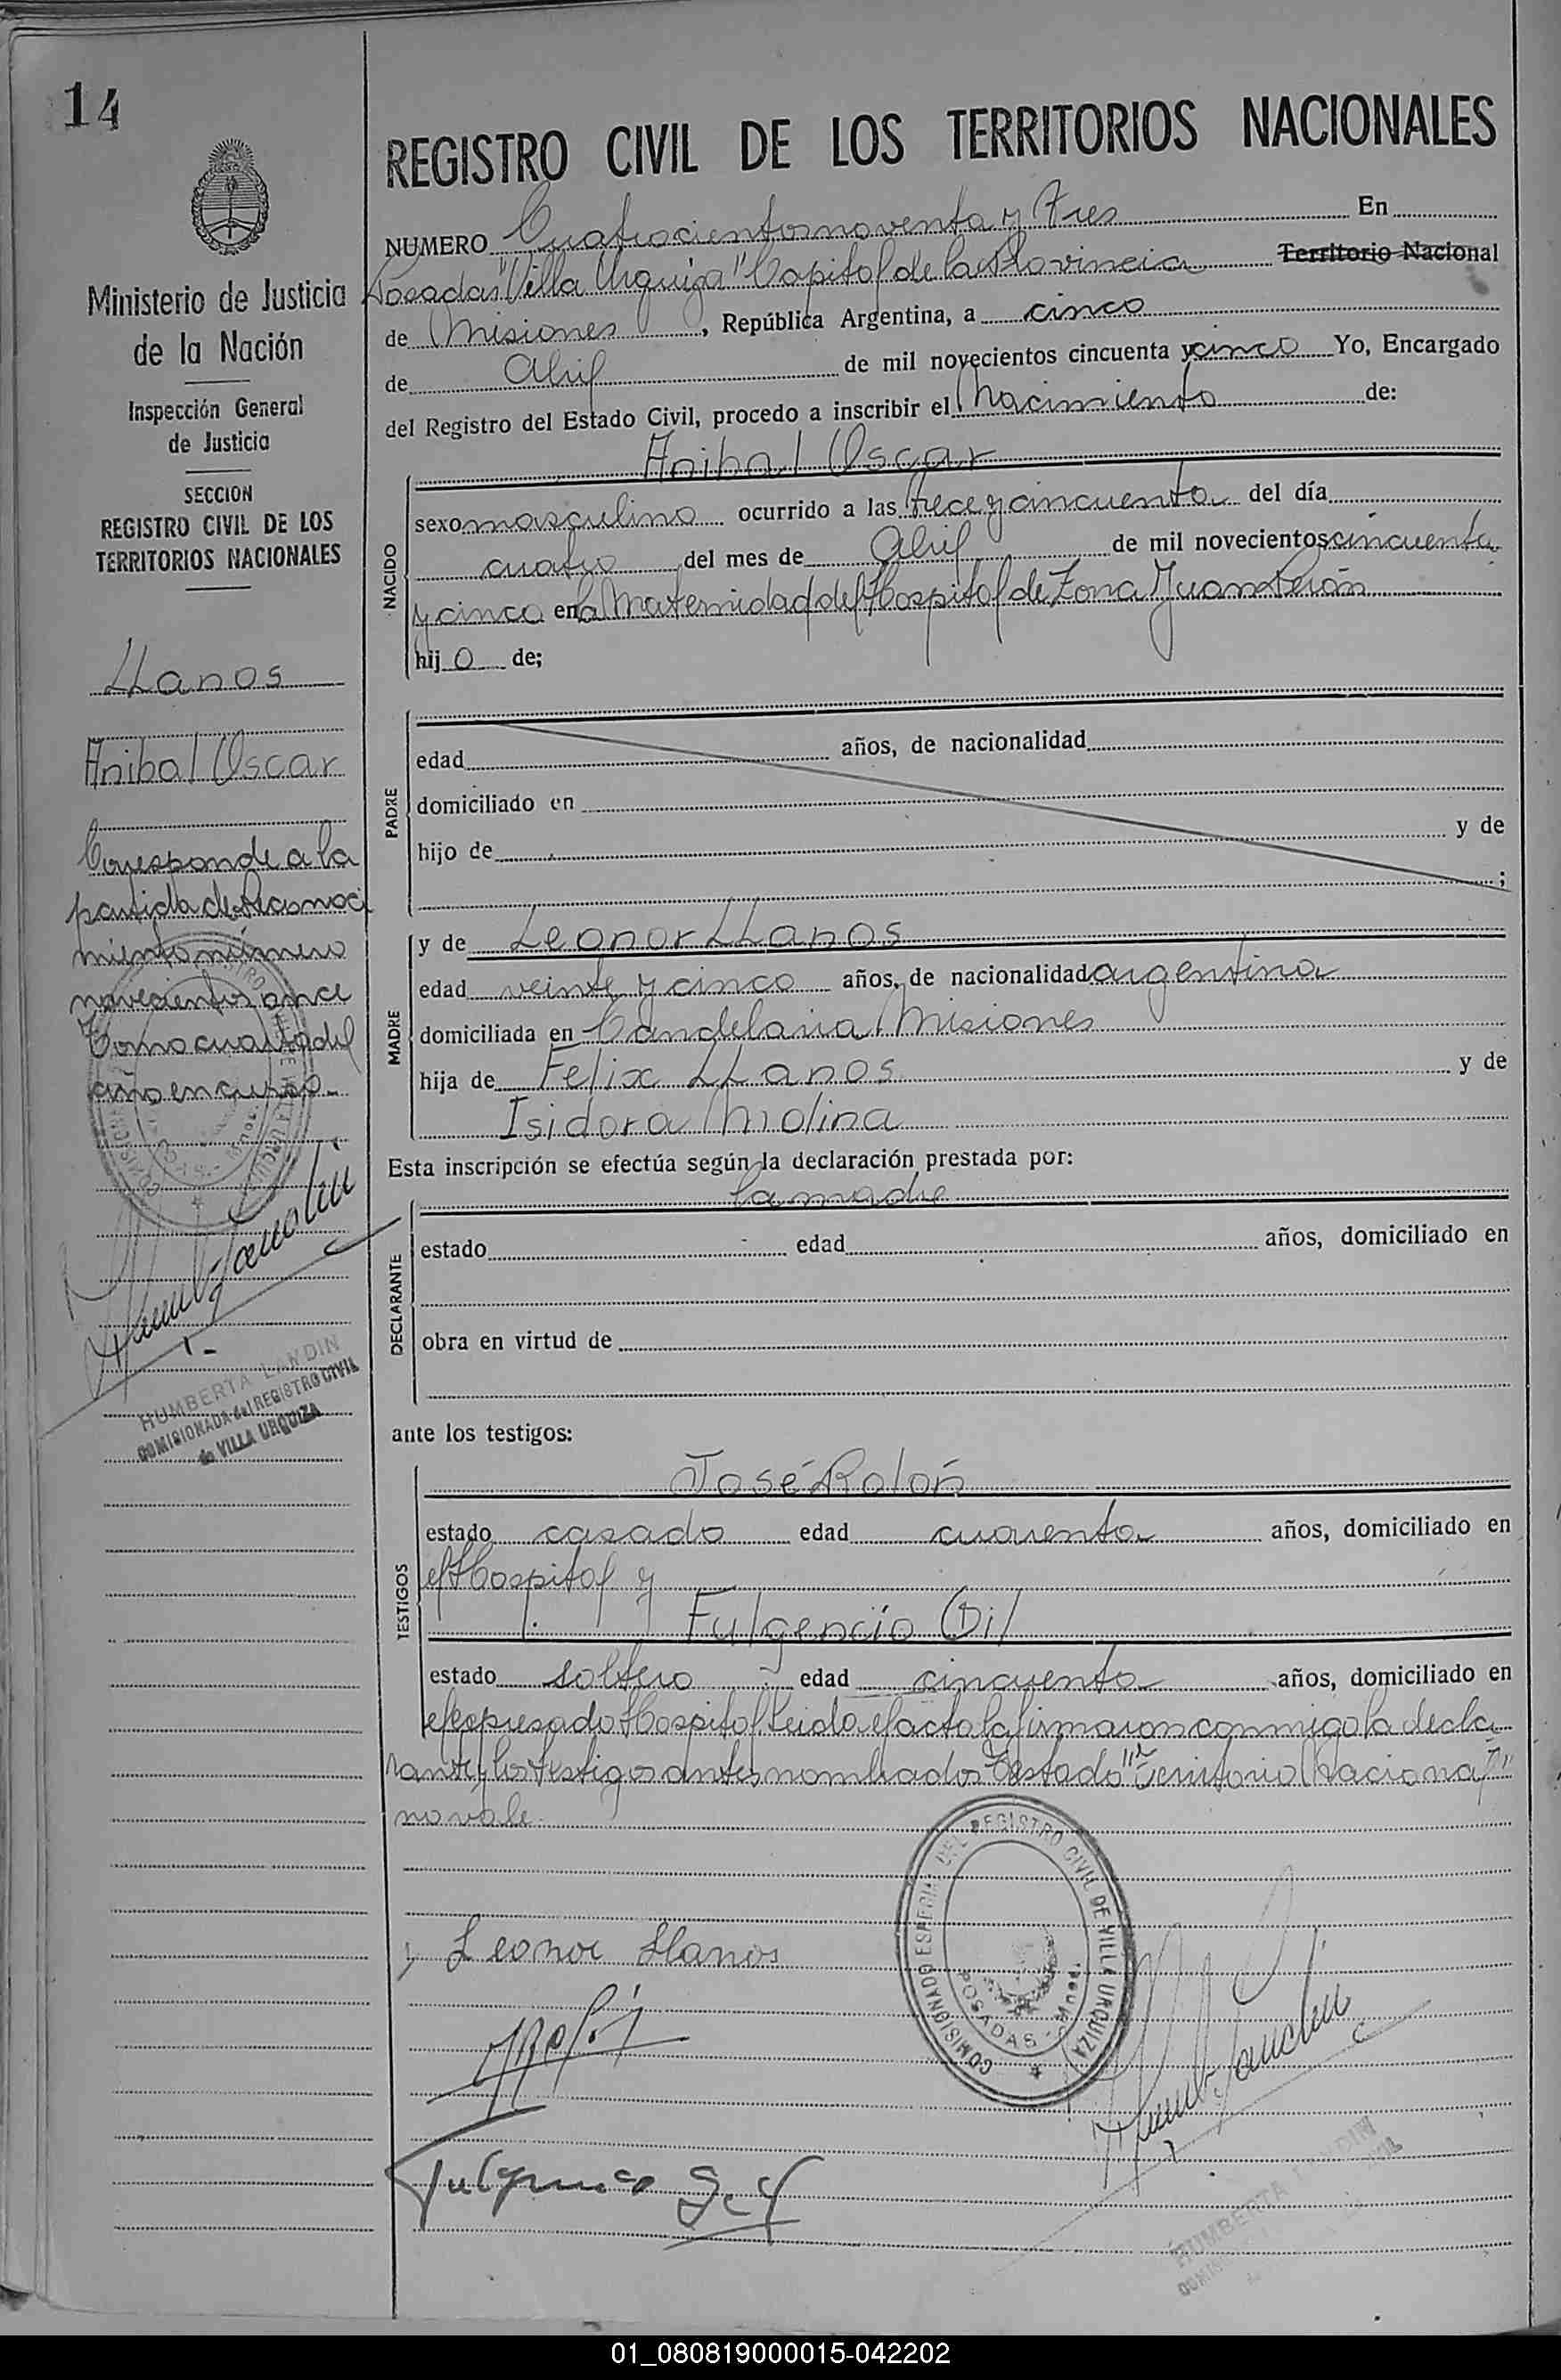 14
Ministerio de Justicia
de la Nación
Inspección General
de Justicia
SECCION
REGISTRO CIVIL DE LOS
TERRITORIOS NACIONALES
LLanos
Anibal Oscar
Corresponde a la
partida de Reconoci
miento número
novecientos once
Tomo cuarto del
año en curso.-
HUMBERTA LANDIN
COMISIONADA del REGISTRO CIVIL
de VILLA URQUIZA
REGISTRO CIVIL DE LOS TERRITORIOS NACIONALES
NUMERO Cuatrocientos noventa y tres En
Posadas "Villa Urquiza" Capital de la Provincia Territorio Nacional
de Misiones, República Argentina, a cinco
de Abril de mil novecientos cincuenta y cinco Yo, Encargado
del Registro del Estado Civil, procedo a inscribir el Nacimiento de:
Anibal Oscar
NACIDO
sexo masculino ocurrido a las trece y cincuenta del día
cuatro del mes de Abril de mil novecientos cincuenta
y cinco en la Maternidad del Hospital de Zona Juan Perón
hijo de;
PADRE
edad años, de nacionalidad
domiciliado en
hijo de y de
;
MADRE
y de Leonor LLanos
edad veinte y cinco años, de nacionalidad argentina
domiciliada en Candelaria Misiones
hija de Felix LLanos y de
Isidora Molina
Esta inscripción se efectúa según la declaración prestada por:
la madre
DECLARANTE
estado edad años, domiciliado en
obra en virtud de
ante los testigos:
TESTIGOS
José Rolón
estado casado edad cuarenta años, domiciliado en
el Hospital y
Fulgencio Gil
estado soltero edad cincuenta años, domiciliado en
el expresado Hospital. Leido el acta la firmaron conmigo la decla
rante y los testigos antes nombrados Testado "Territorio Nacional"
no vale.
COMISIONADO ESPECIAL DEL REGISTRO CIVIL DE VILLA URQUIZA
POSADAS - Mnes.
Leonor Llanos
Fulgencio Gil
HUMBERTA LANDIN
01_080819000015-042202